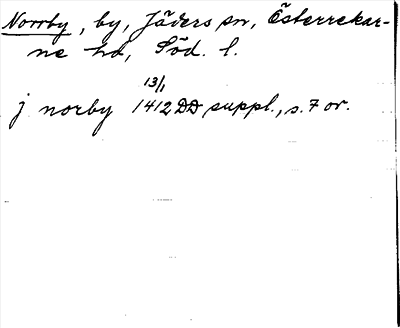 Norrby, by, Jäders sn, Österrekar-
ne hd, Söd. l.
13/1
j norby 1412 DD suppl., s. 7 or.